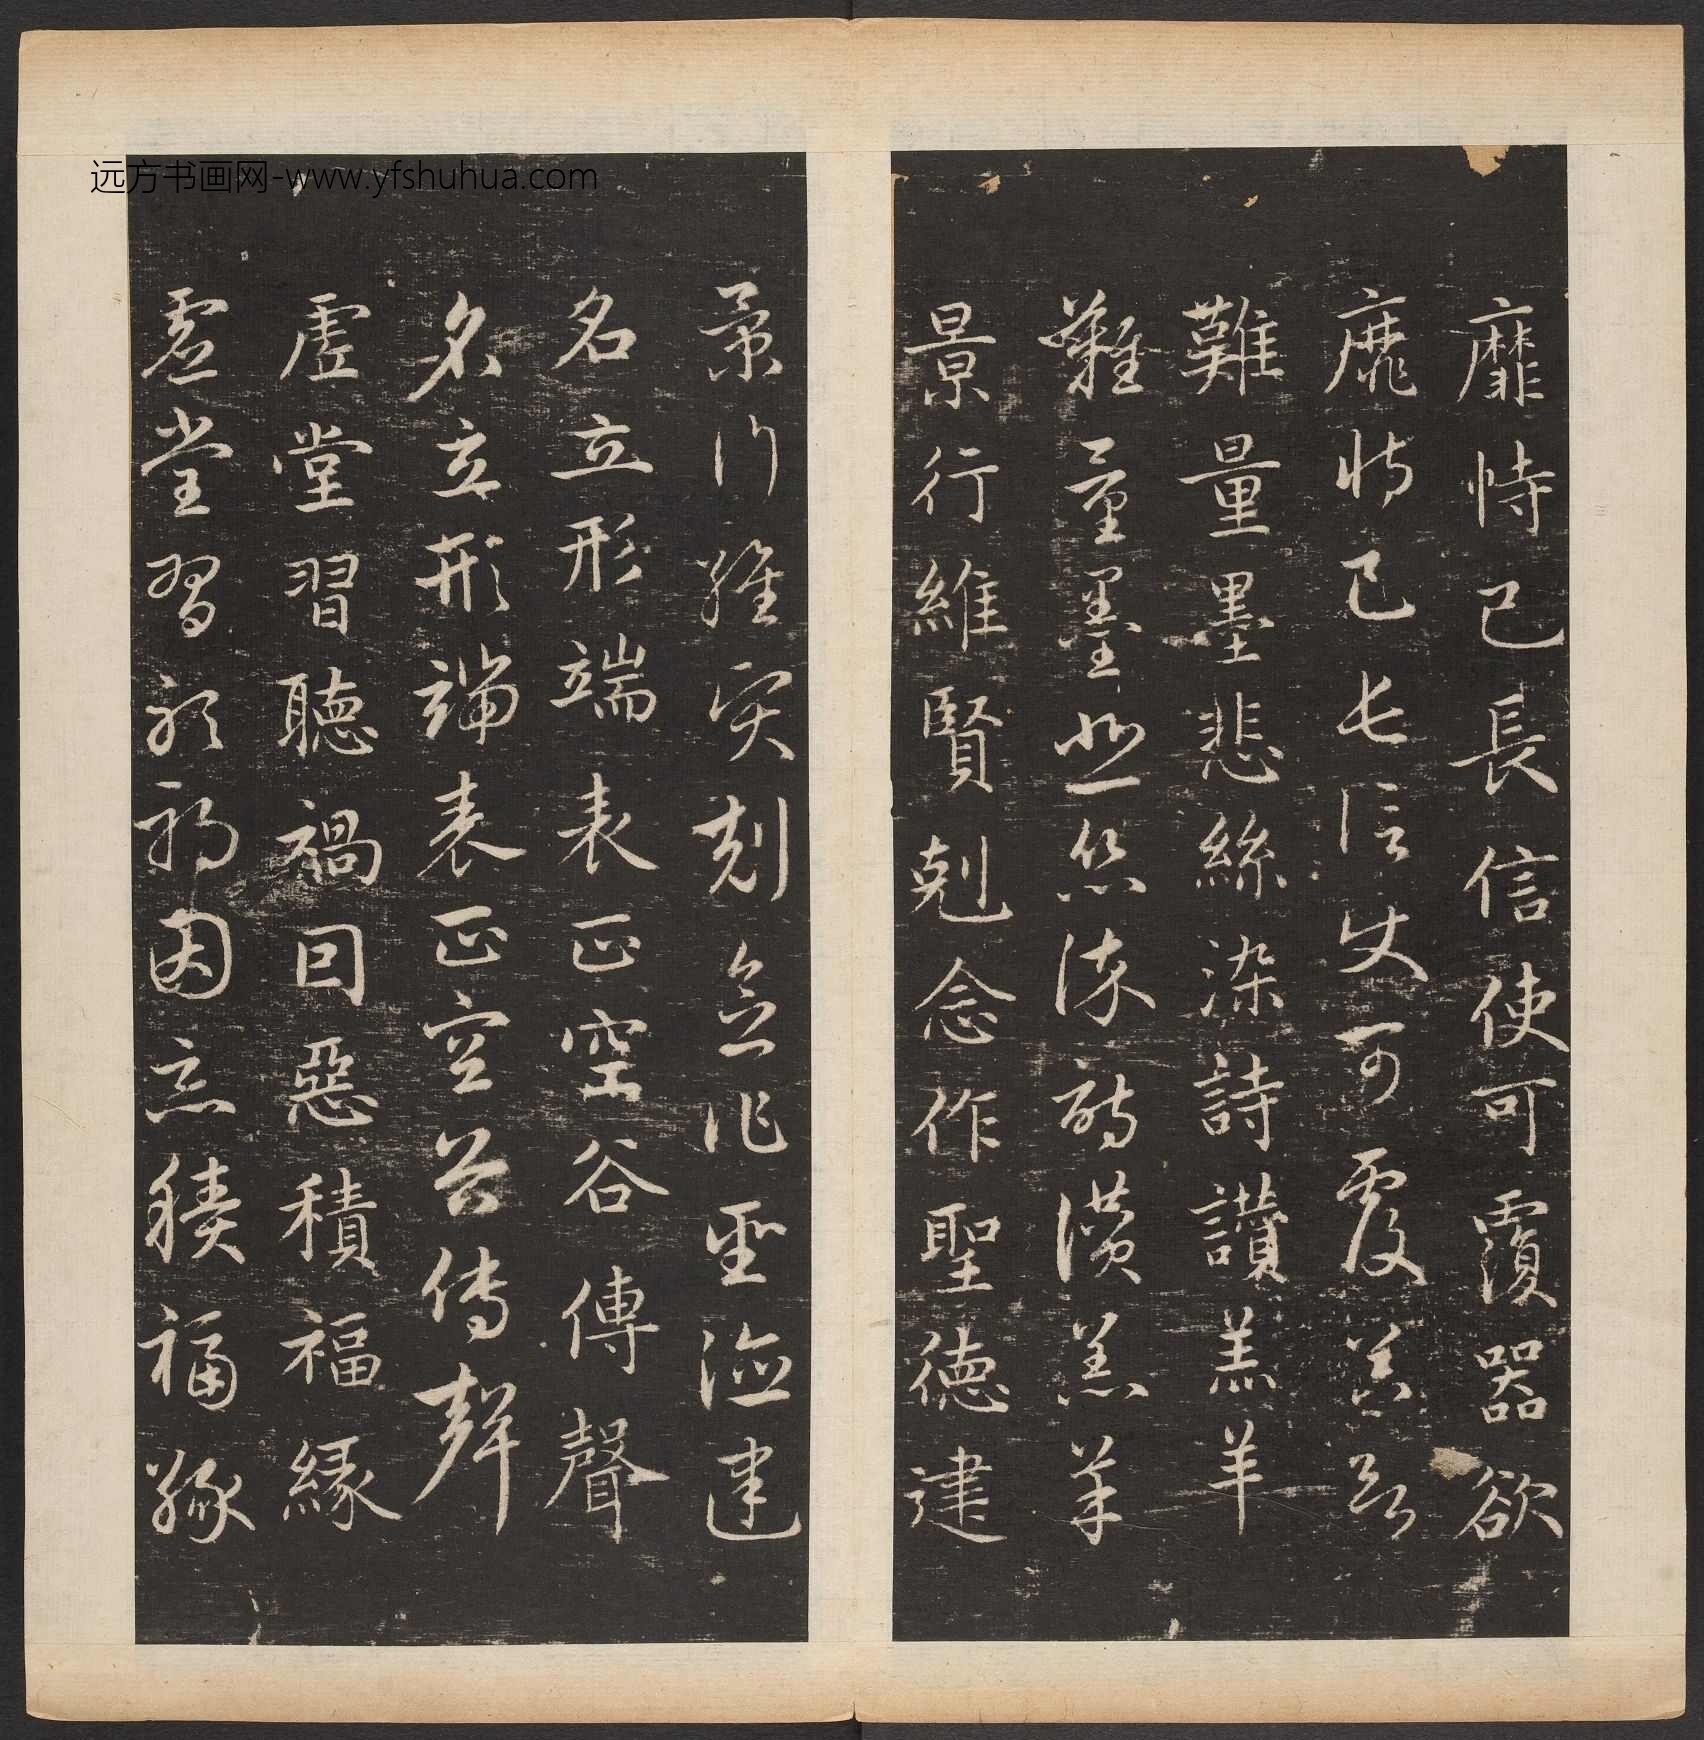 远方书画网-www.yfshuhua.com
靡恃己長信使可覆器欲
靡恃己長信使可覆器欲
難量墨悲絲染詩讚羔羊
難量墨悲絲染詩讚羔羊
景行維賢剋念作聖德建
景行維賢剋念作聖德建
名立形端表正空谷傳聲
名立形端表正空谷傳聲
虛堂習聽禍因惡積福緣
虛堂習聽禍因惡積福緣